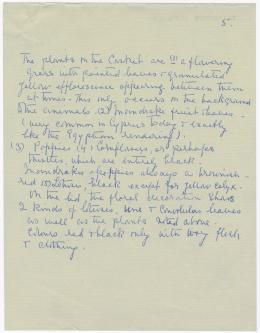 5.
The plants on the Casket are (1) a flowering
grass with pointed leaves & granulated
yellow efflorescence appearing between them
at times. This only occurs in the background
to the animals. (2) Mandrake fruit & leaves -
(very common in Cyprus today & exactly
like the Egyptian rendering).
(3) Poppies (4) Cornflowers, or perhaps
thistles, which are entirely black.
Mandrakes & poppies always a brownish-
red, black except for yellow calyx.
On the lid, the floral decoration shows
2 kinds of lotuses, vine & Convolvulus leaves
as well as the plants noted above.
Colours red & black only with ivory flesh
& clothing.